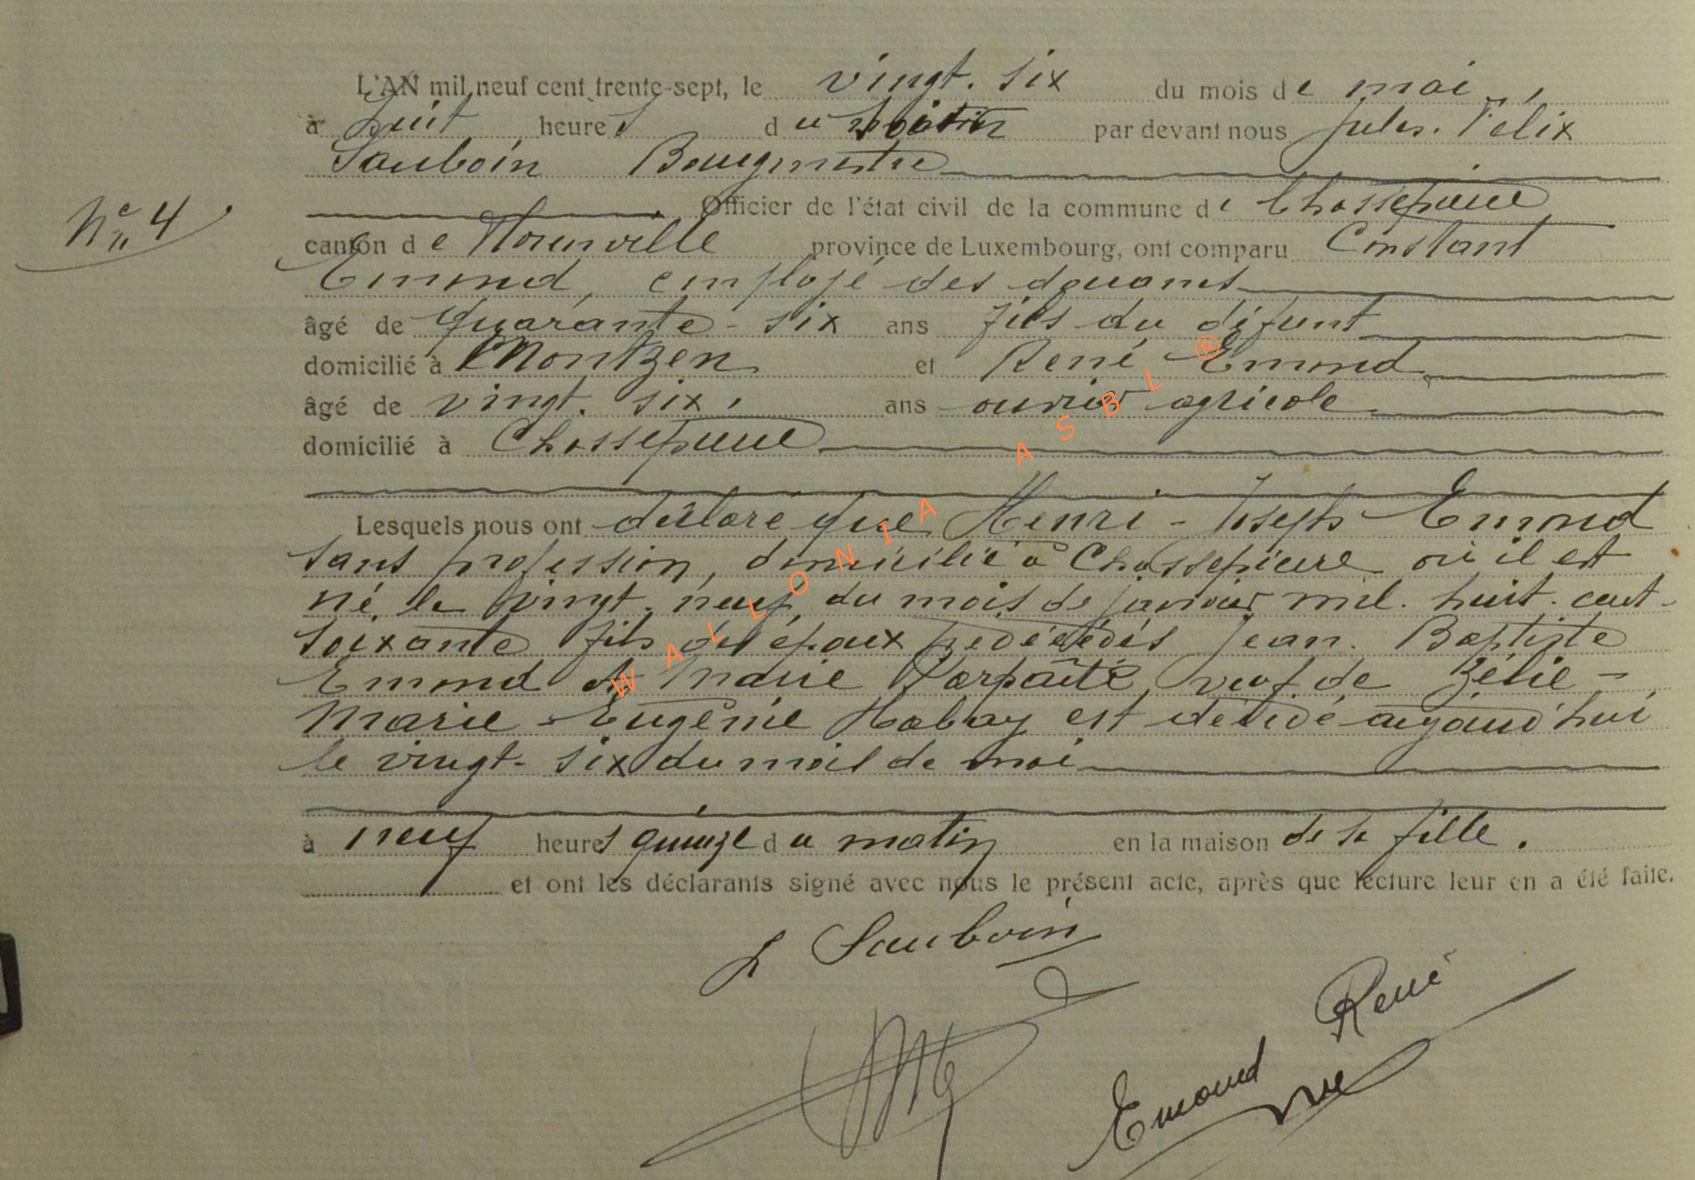 L'AN mil neuf cent trente-sept, le vingt-six du mois de mai,
à huit heures du par devant nous Jules-Félix
Sauboin Bourgmestre
N° 4
Officier de l'état civil de la commune de Chassepierre
canton de Florenville province de Luxembourg, ont comparu Constant
Emond, employé des douanes
âgé de quarante-six ans fils du défunt
domicilié à Montzen et René Emond
âgé de vingt-six, ans ouvrier agricole
domicilié à Chassepierre
Lesquels nous ont déclaré que Henri-Joseph Emond
sans profession, domicilié à Chassepierre où il est
né le vingt-neuf du mois de janvier mil-huit-cent-
soixante fils des époux Jean-Baptiste
Emond et Marie Parfaite, veuf de Zélie-
Marie-Eugénie Habay est décédé aujourd'hui
le vingt-six du mois de mai
à neuf heures quinze du matin en la maison de sa fille.
et ont les déclarants signé avec nous le présent acte, après que lecture leur en a été faite.
Sauboin
Emond René
WALLONIA ASBL ®